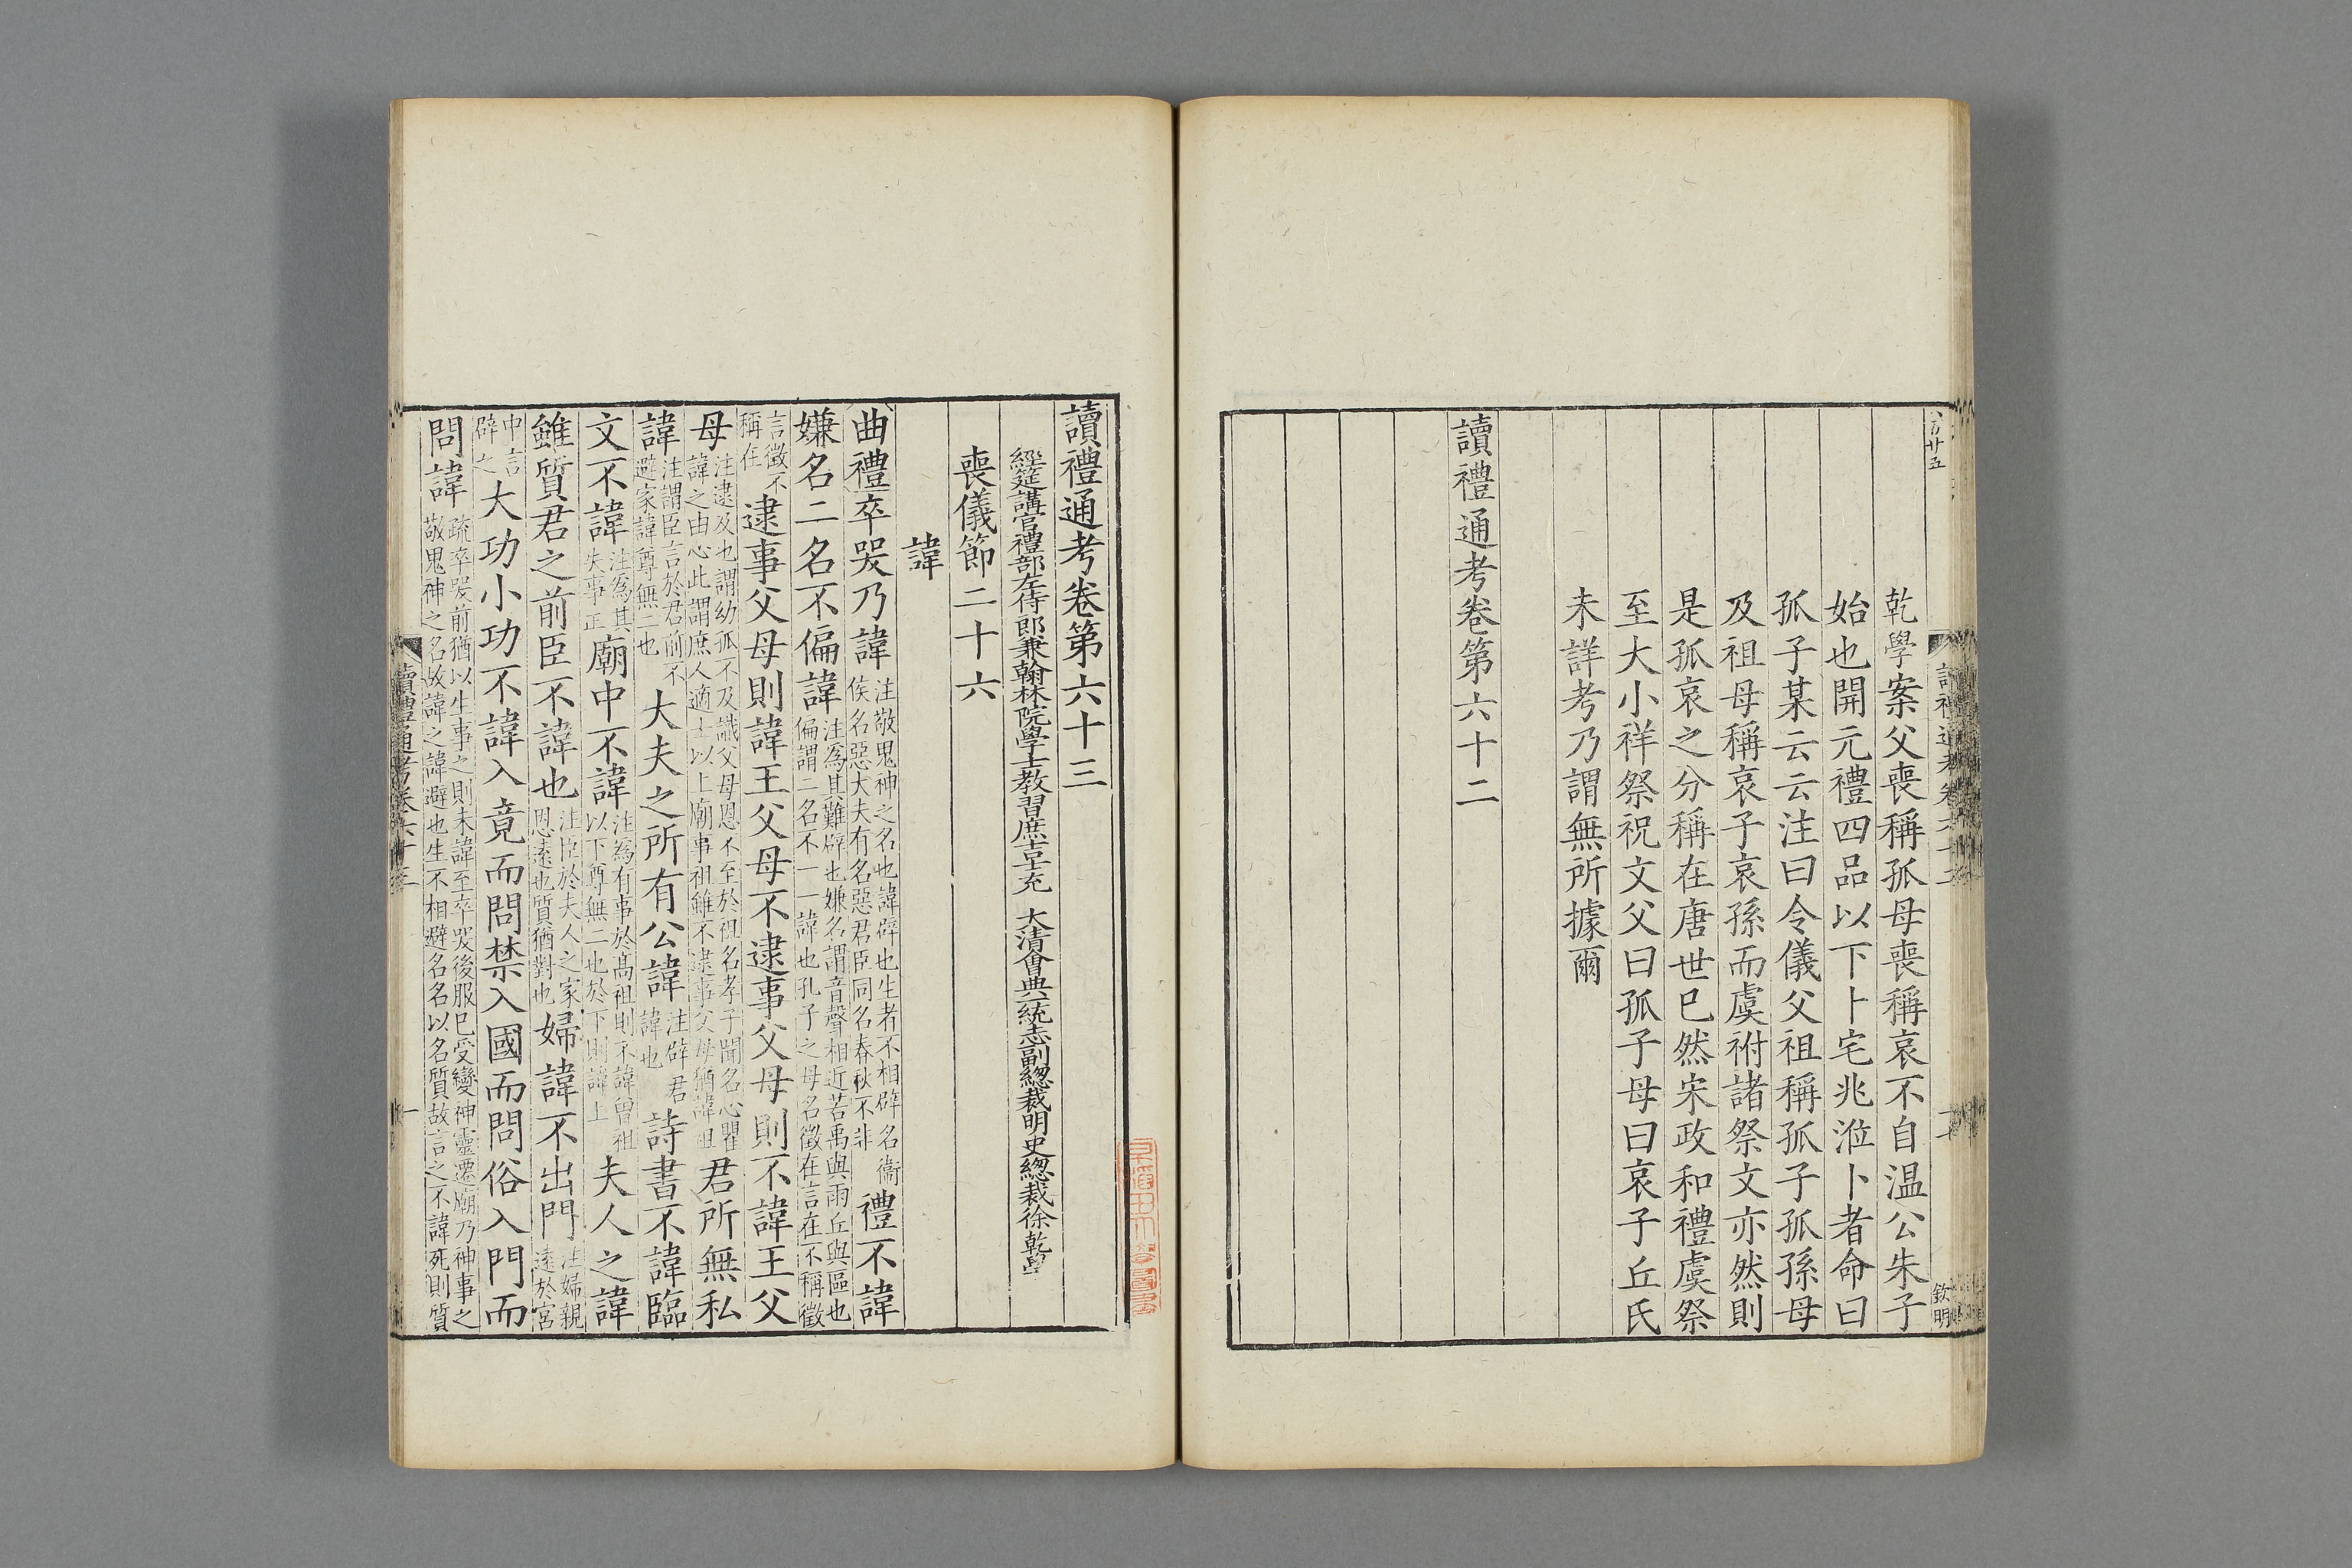 乾學案父喪稱孤母喪稱哀不自温公朱子
始也開元禮四品以下卜宅兆涖卜者命曰
孤子某云云注曰令儀父祖稱孤子孤孫母
及祖母稱哀子哀孫而虞祔諸祭文亦然則
是孤哀之分稱在唐世已然宋政和禮虞祭
至大小祥祭祝文父曰孤子母曰哀子丘氏
未詳考乃謂無所據爾
讀禮通考卷第六十二
欽明
讀禮通考卷第六十三
經筵講官禮部左侍郎兼翰林院學士教習庶吉士充 大清會典一統志副總裁明史總裁徐乾學
喪儀節二十六
諱
曲禮卒哭乃諱注敬鬼神之名也諱辟也生者不相辟名衞侯名惡大夫有名惡君臣同名春秋不非禮不諱
嫌名二名不偏諱注為其難辟也嫌名謂音聲相近若禹與雨丘與區也偏謂二名不一一諱也孔子之母名徵在言在不稱徵
言徵不稱在逮事父母則諱王父母不逮事父母則不諱王父
母注逮及也謂幼孤不及識父母恩不至於祖名孝子聞名心瞿諱之由心此謂庶人適士以上廟事祖雖不逮事父母猶諱祖君所無私
諱注謂臣言於君前不避家諱尊無二也大夫之所有公諱注辟君諱也詩書不諱臨
文不諱注為其失事正廟中不諱注為有事於高祖則不諱曾祖以下尊無二也於下則諱上夫人之諱
雖質君之前臣不諱也注臣於夫人之家恩遠也質猶對也婦諱不出門注婦親遠於宮
中言辟之大功小功不諱入竟而問禁入國而問俗入門而
問諱疏卒哭前猶以生事之則未諱至卒哭後服已受變神靈遷廟乃神事之敬鬼神之名故諱之諱避也生不相避名名以名質故言之不諱死則質
讀禮通考卷六十三 一